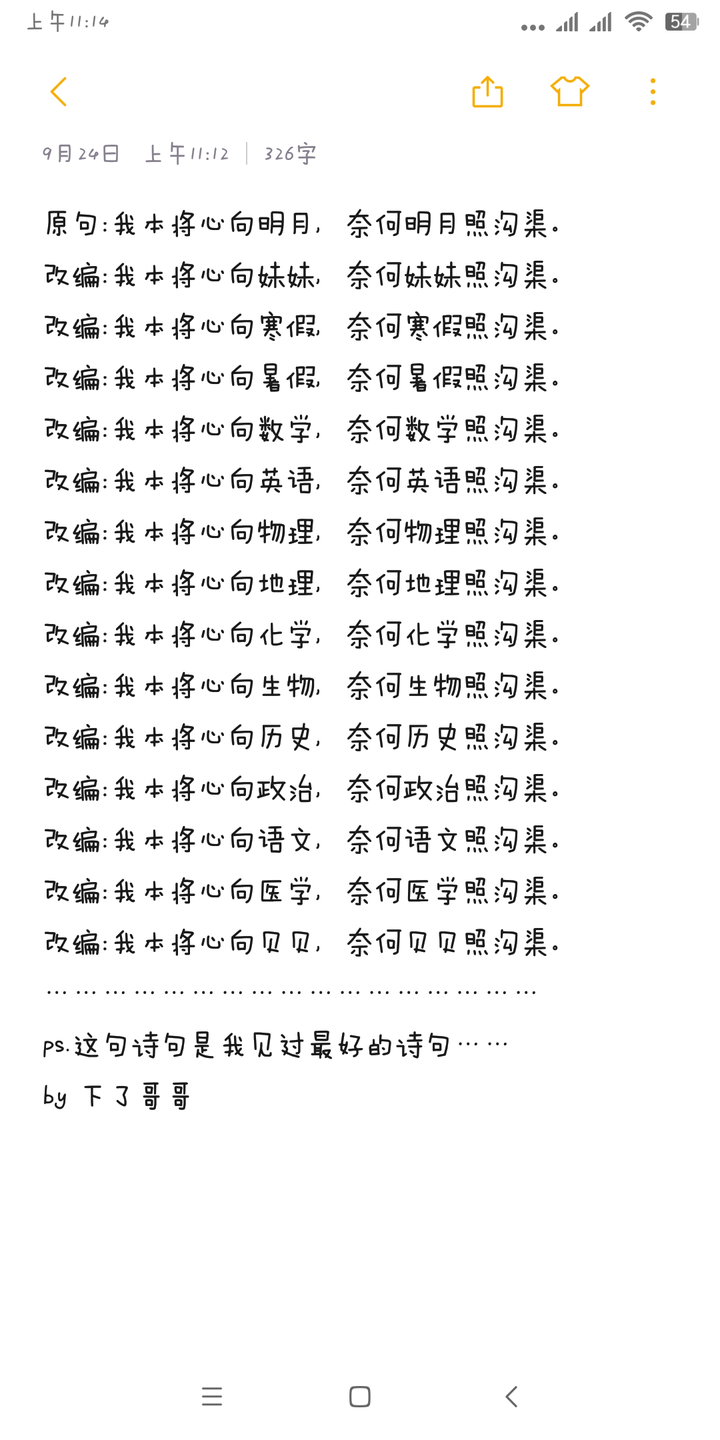 上午11:14
54
9月24日 上午11:12 | 326字
原句:我本将心向明月, 奈何明月照沟渠。
改编:我本将心向妹妹, 奈何妹妹照沟渠。
改编:我本将心向寒假, 奈何寒假照沟渠。
改编:我本将心向暑假, 奈何暑假照沟渠。
改编:我本将心向数学, 奈何数学照沟渠。
改编:我本将心向英语, 奈何英语照沟渠。
改编:我本将心向物理, 奈何物理照沟渠。
改编:我本将心向地理, 奈何地理照沟渠。
改编:我本将心向化学, 奈何化学照沟渠。
改编:我本将心向生物, 奈何生物照沟渠。
改编:我本将心向历史, 奈何历史照沟渠。
改编:我本将心向政治, 奈何政治照沟渠。
改编:我本将心向语文, 奈何语文照沟渠。
改编:我本将心向医学, 奈何医学照沟渠。
改编:我本将心向贝贝, 奈何贝贝照沟渠。
………………………………………………
ps.这句诗句是我见过最好的诗句……
by 下了哥哥